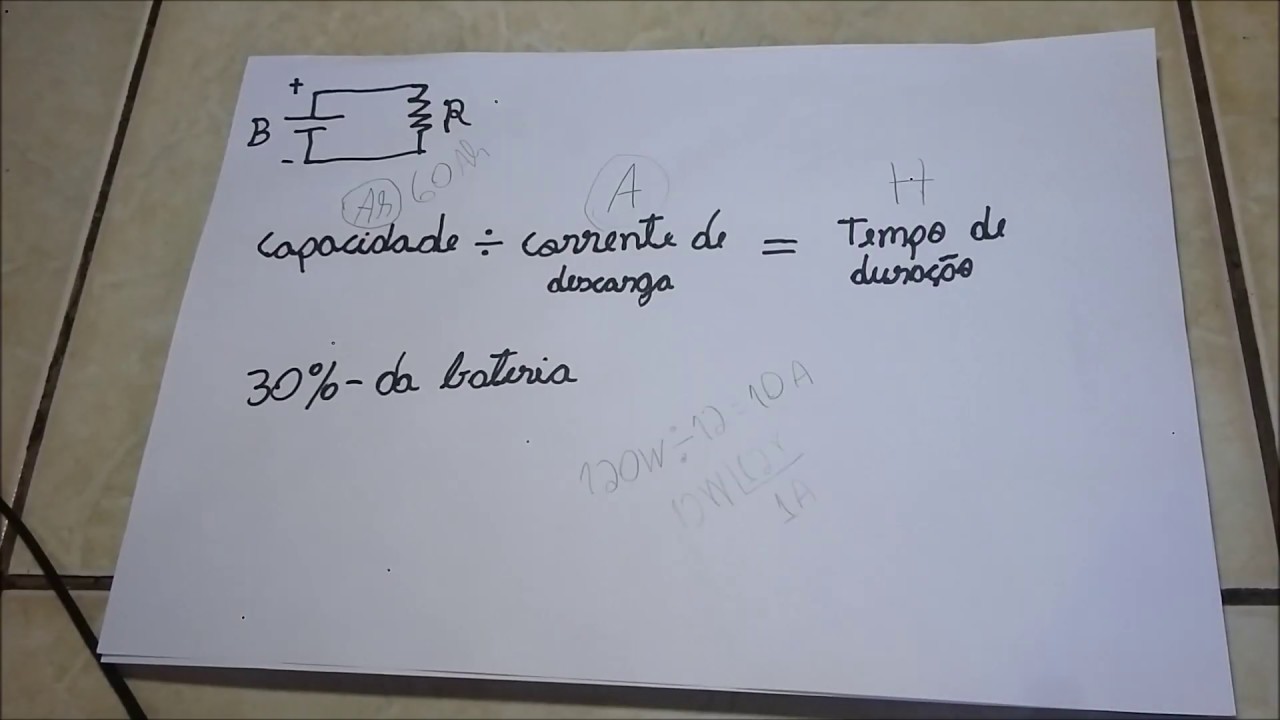 +
B R
-
Ah 60Ah A H
capacidade ÷ corrente de = Tempo de
descarga duração
30%- da bateria
120W ÷ 12 = 10A
12W
1A